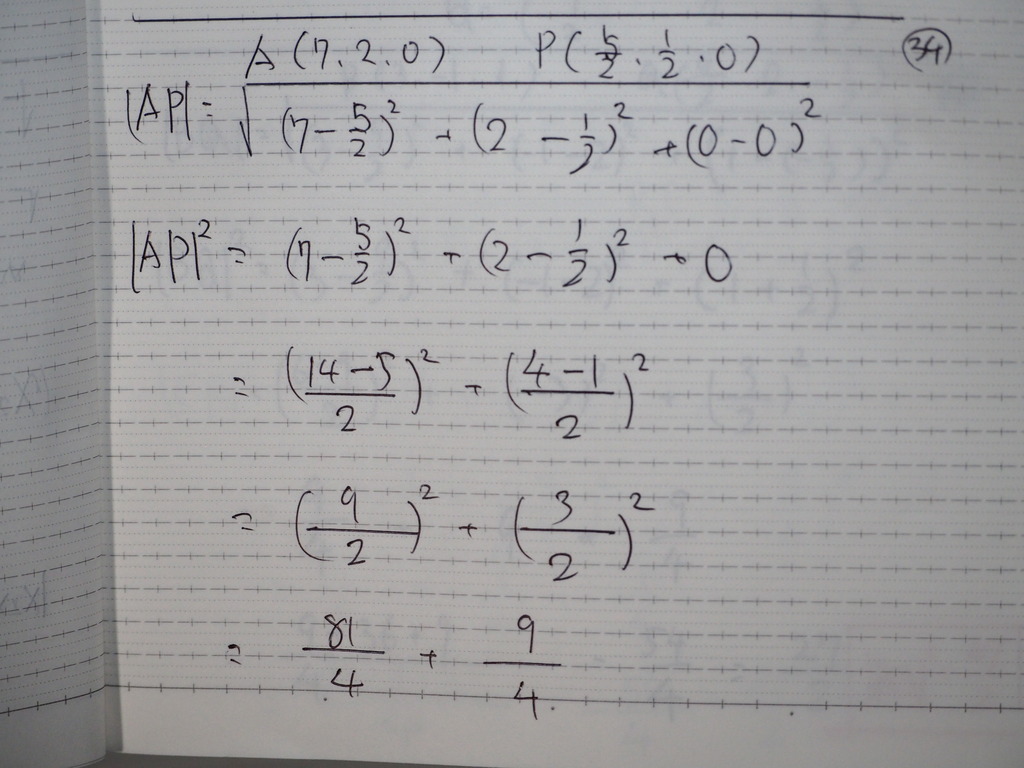 A (7. 2. 0) P ( 5/2 . 1/2 . 0 ) 34
|AP| = √( (7 - 5/2)² + (2 - 1/2)² + (0 - 0)² )
|AP|² = (7 - 5/2)² + (2 - 1/2)² + 0
= ( (14 - 5)/2 )² + ( (4 - 1)/2 )²
= ( 9/2 )² + ( 3/2 )²
= 81/4 + 9/4